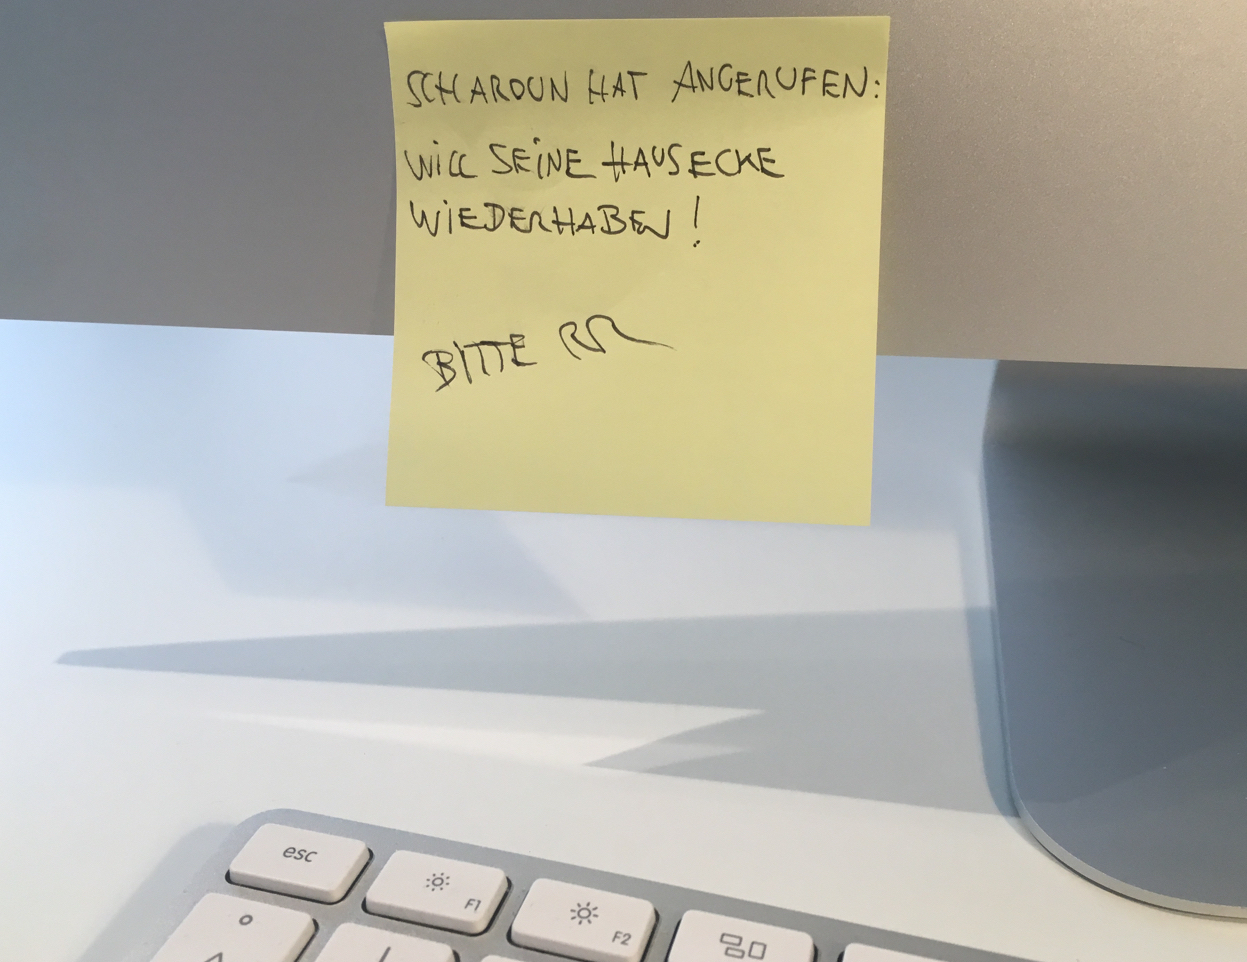 SCHAROUN HAT ANGERUFEN:
WILL SEINE HAUSECKE
WIEDERHABEN!
BITTE RR
esc
F1
F2
°